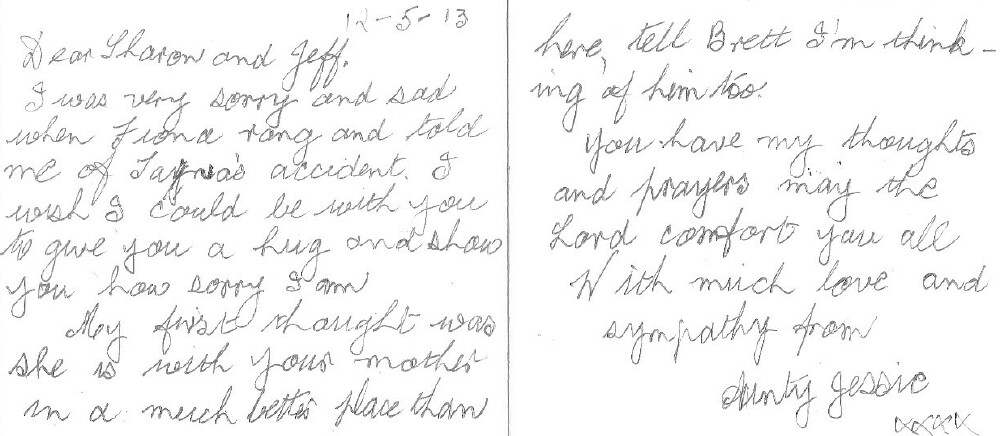 12-5-13
Dear Sharon and Jeff.
I was very sorry and sad
when Fiona rang and told
me of accident. I
wish I could be with you
to give you a hug and show
you how sorry I am
My first thought was
she is with your mother
in a much better place than
here, tell Brett I'm think-
ing of him too.
You have my thoughts
and prayers may the
Lord comfort you all
With much love and
sympathy from
Aunty Jessie
xxxx